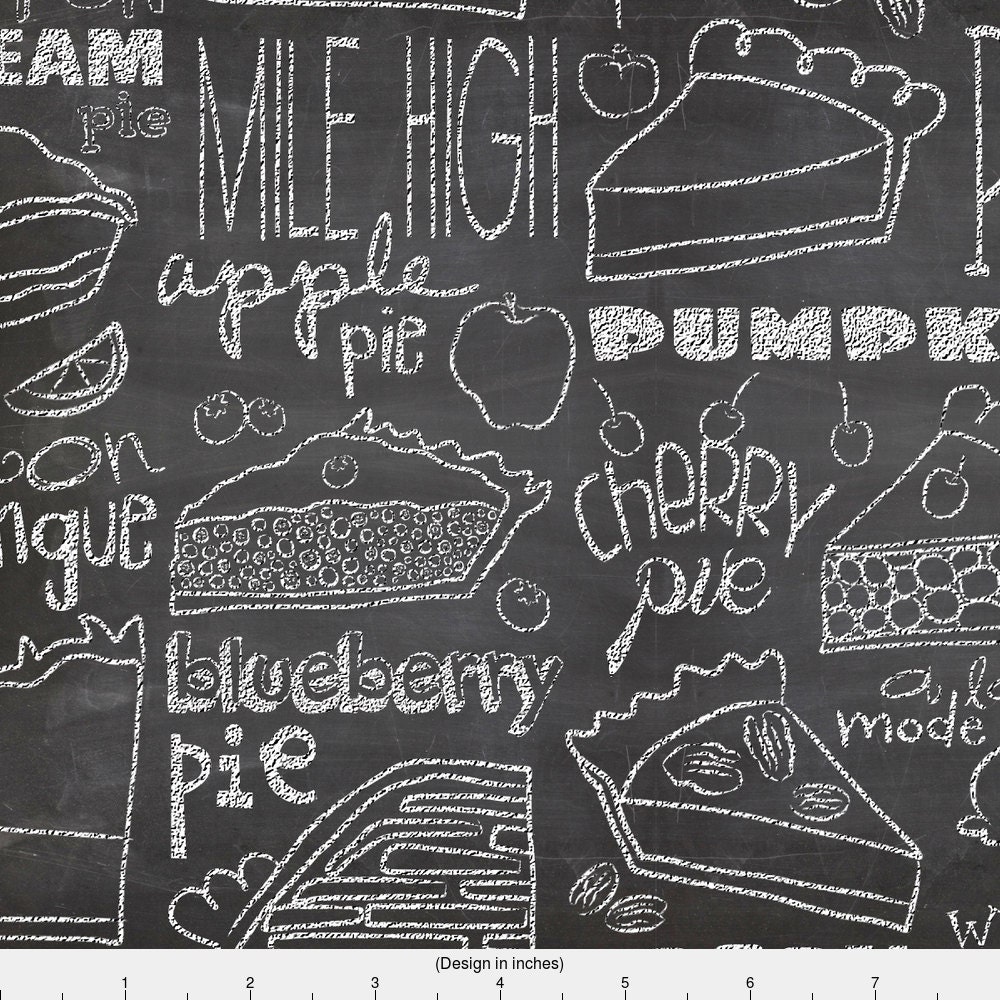 EAM
pie
MILE HIGH
apple
pie
PUMPK
on
ngue
cherry
pie
blueberry
pie
a la
mode
W
(Design in inches)
1 2 3 4 5 6 7